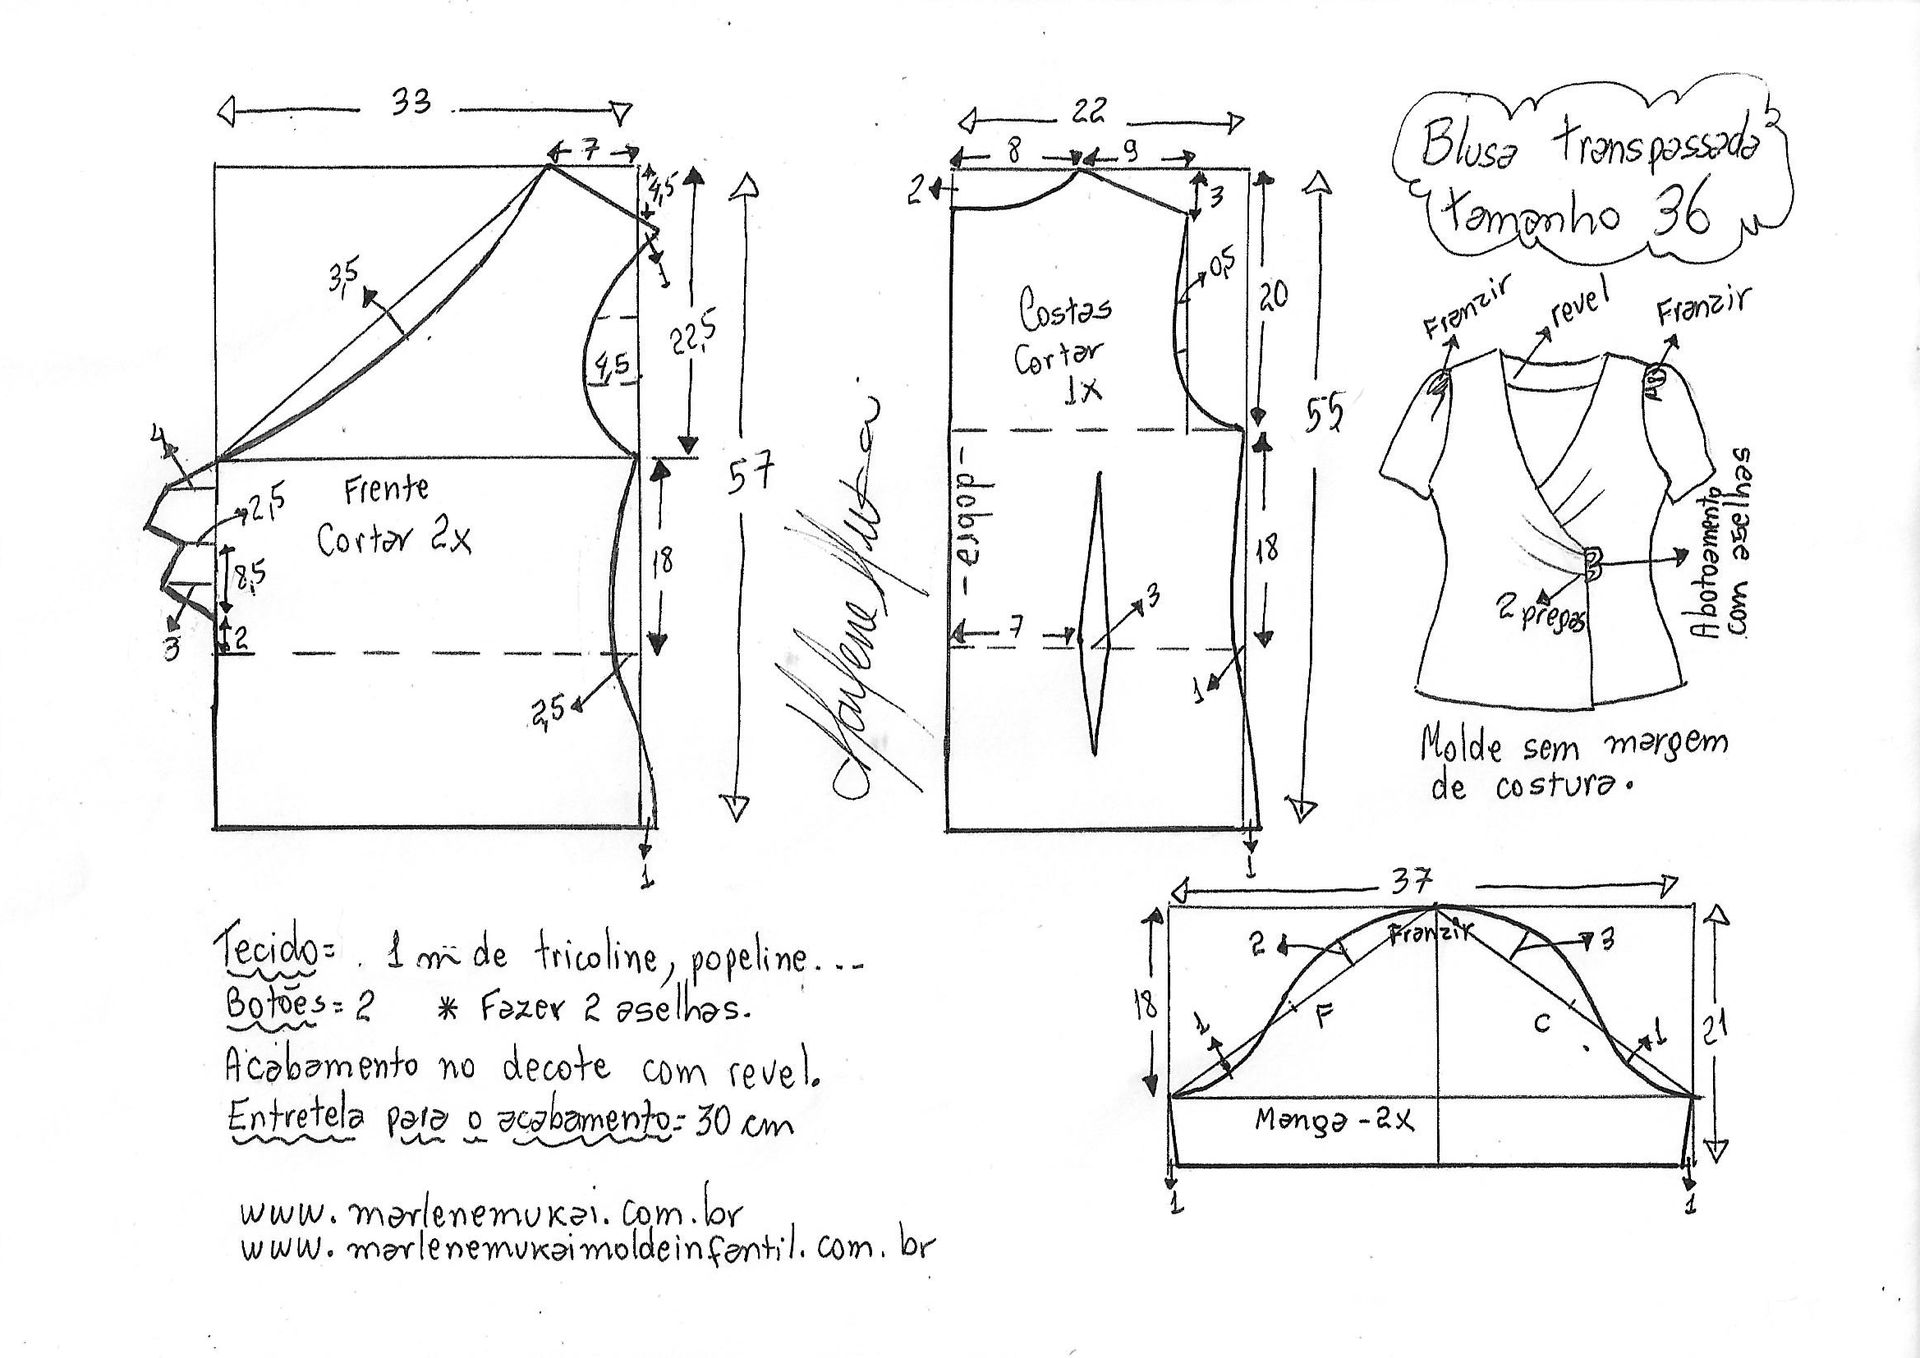 33
7
4,5
1
3,5
4,5
22,5
57
4
2,5
8,5
3
2
Frente
Cortar 2x
18
2,5
1
Marlene Mukai
22
8
9
2
3
0,5
20
55
Costas
Cortar
1x
-dobra-
18
7
3
1
1
Blusa transpassada
tamanho 36
Franzir
revel
Franzir
Abotoamento
com aselhas
2 pregas
Molde sem margem
de costura.
37
Franzir
2
3
18
F
C
21
1
1
Manga - 2x
1
1
Tecido = . 1 m de tricoline, popeline...
Botões = 2 * Fazer 2 aselhas.
Acabamento no decote com revel.
Entretela para o acabamento = 30 cm
www.marlenemukai.com.br
www.marlenemukaimoldeinfantil.com.br